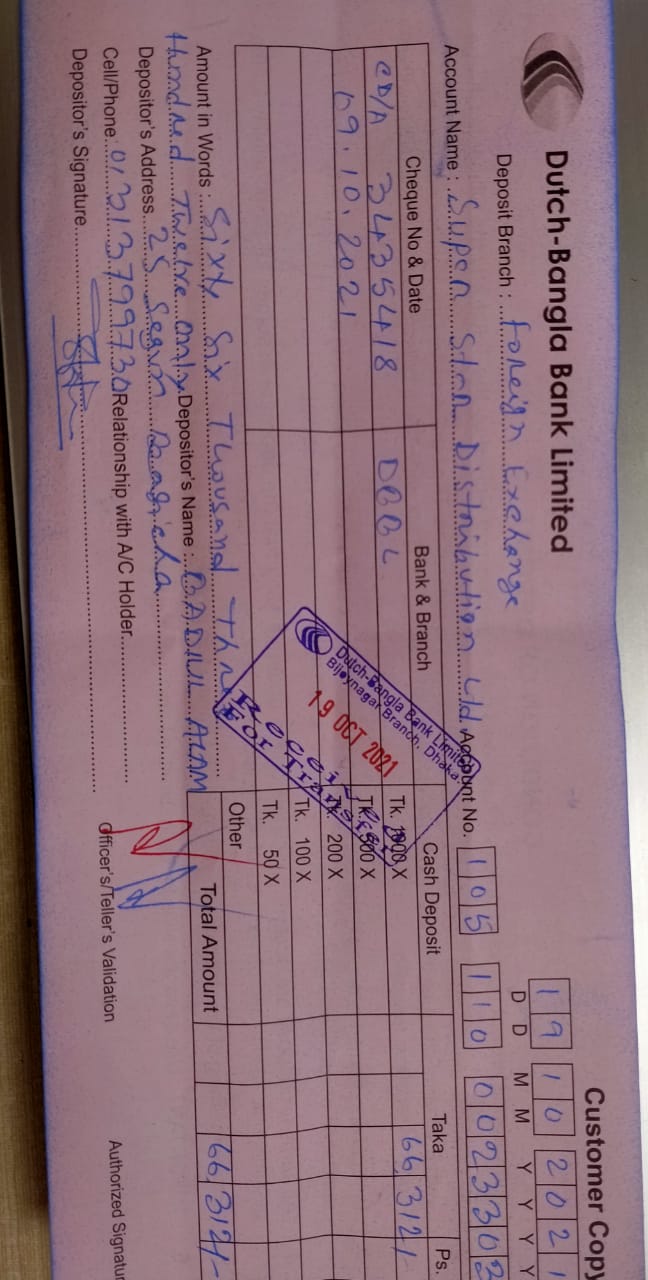 Dutch-Bangla Bank Limited
Customer Copy
Deposit Branch : Foreign Exchange
19 10 2021
D D M M Y Y Y Y
Account Name : Super Star Distribution Ltd. Account No. 105 110 0023302
Cheque No & Date Bank & Branch Cash Deposit Taka Ps.
CD/A 3435418 DBBL Tk. 1000 X 66,312/-
09.10.2021 Tk. 500 X
Tk. 200 X
Tk. 100 X
Tk. 50 X
Other
Dutch-Bangla Bank Limited
Bijoynagar Branch, Dhaka.
19 OCT 2021
Received
For Transfer
Amount in Words : Sixty Six Thousand Three Total Amount 66,312/-
Hundred Twelve only Depositor's Name : BADIUL ALAM
Depositor's Address 25 Segun Bagicha
Cell/Phone 01313799730 Relationship with A/C Holder
Officer's/Teller's Validation Authorized Signatur
Depositor's Signature